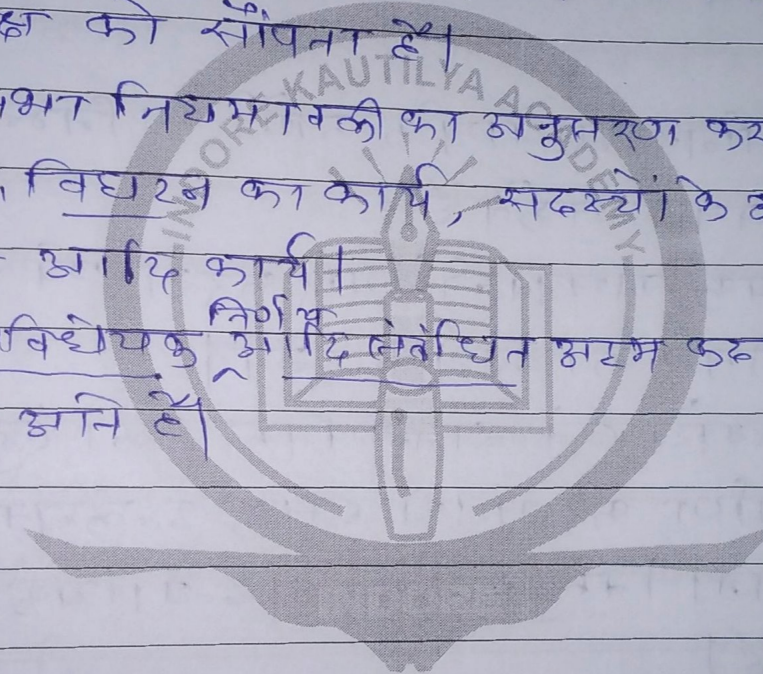 क्ष को सौंपता है।
भा नियमावली का अनुसरण कर
विघटन का कार्य, सदस्यों के
आदि कार्य।
निर्णय
विधेयक आदि संबंधित अहम कद
आते है।
INDORE KAUTILYA ACADEMY